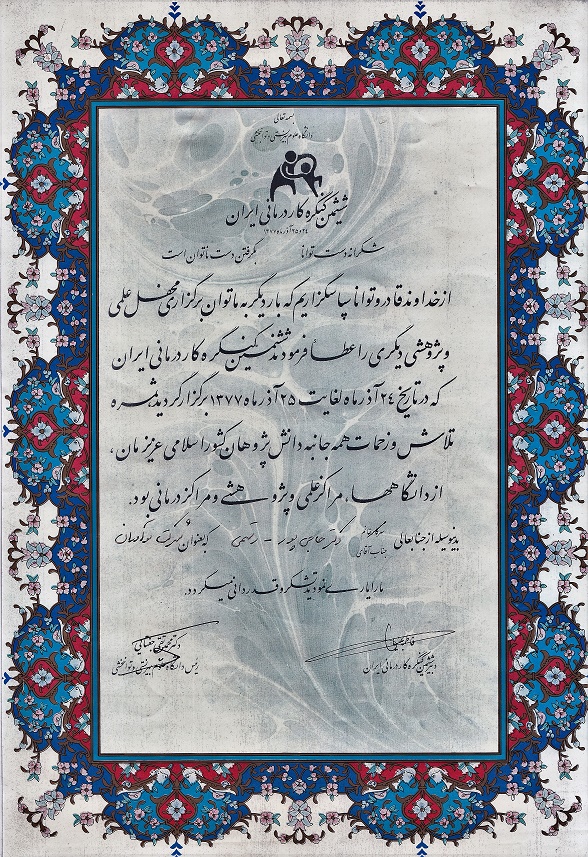 بسمه تعالی
دانشگاه علوم بهزیستی و توانبخشی
ششمین کنگره کاردرمانی ایران
۲۴ و ۲۵ آذرماه ۱۳۷۷
شکرانه دست توانا بگرفتن دست ناتوان است
از خداوند قادر و توانا سپاسگزاریم که بار دیگر به ما توان برگزاری محفل علمی
و پژوهشی دیگری را عطا فرمود ششمین کنگره کاردرمانی ایران
که در تاریخ ۲۴ آذرماه لغایت ۲۵ آذرماه ۱۳۷۷ برگزار گردید ثمره
تلاش و زحمات همه جانبه دانش پژوهان کشور اسلامی عزیزمان،
از دانشگاهها، مراکز علمی و پژوهشی و مراکز درمانی بود.
بدینوسیله از جنابعالی سرکار خانم جناب آقای دکتر حاجی که بعنوان شرکت
ما را یاری نمودید تشکر و قدردانی میگردد.
دکتر محمدتقی جغتایی
دبیر ششمین کنگره کاردرمانی ایران
رئیس دانشگاه علوم بهزیستی و توانبخشی